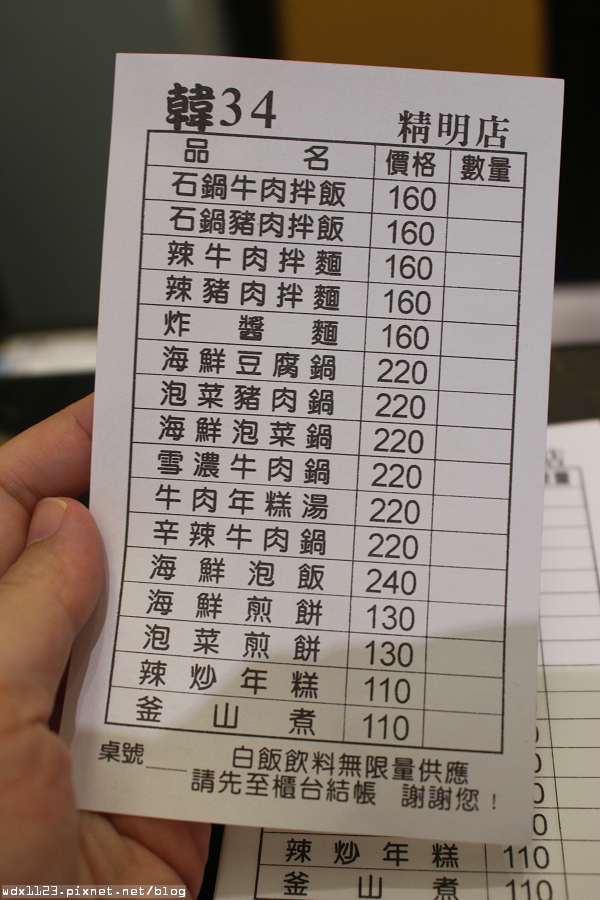 韓34 精明店
品名 價格 數量
石鍋牛肉拌飯 160
石鍋豬肉拌飯 160
辣牛肉拌麵 160
辣豬肉拌麵 160
炸醬麵 160
海鮮豆腐鍋 220
泡菜豬肉鍋 220
海鮮泡菜鍋 220
雪濃牛肉鍋 220
牛肉年糕湯 220
辛辣牛肉鍋 220
海鮮泡飯 240
海鮮煎餅 130
泡菜煎餅 130
辣炒年糕 110
釜山煮 110
桌號___ 白飯飲料無限量供應
請先至櫃台結帳 謝謝您!
店
量
0
0
0
0
辣炒年糕 110
釜山煮 110
wdx1123.pixnet.net/blog